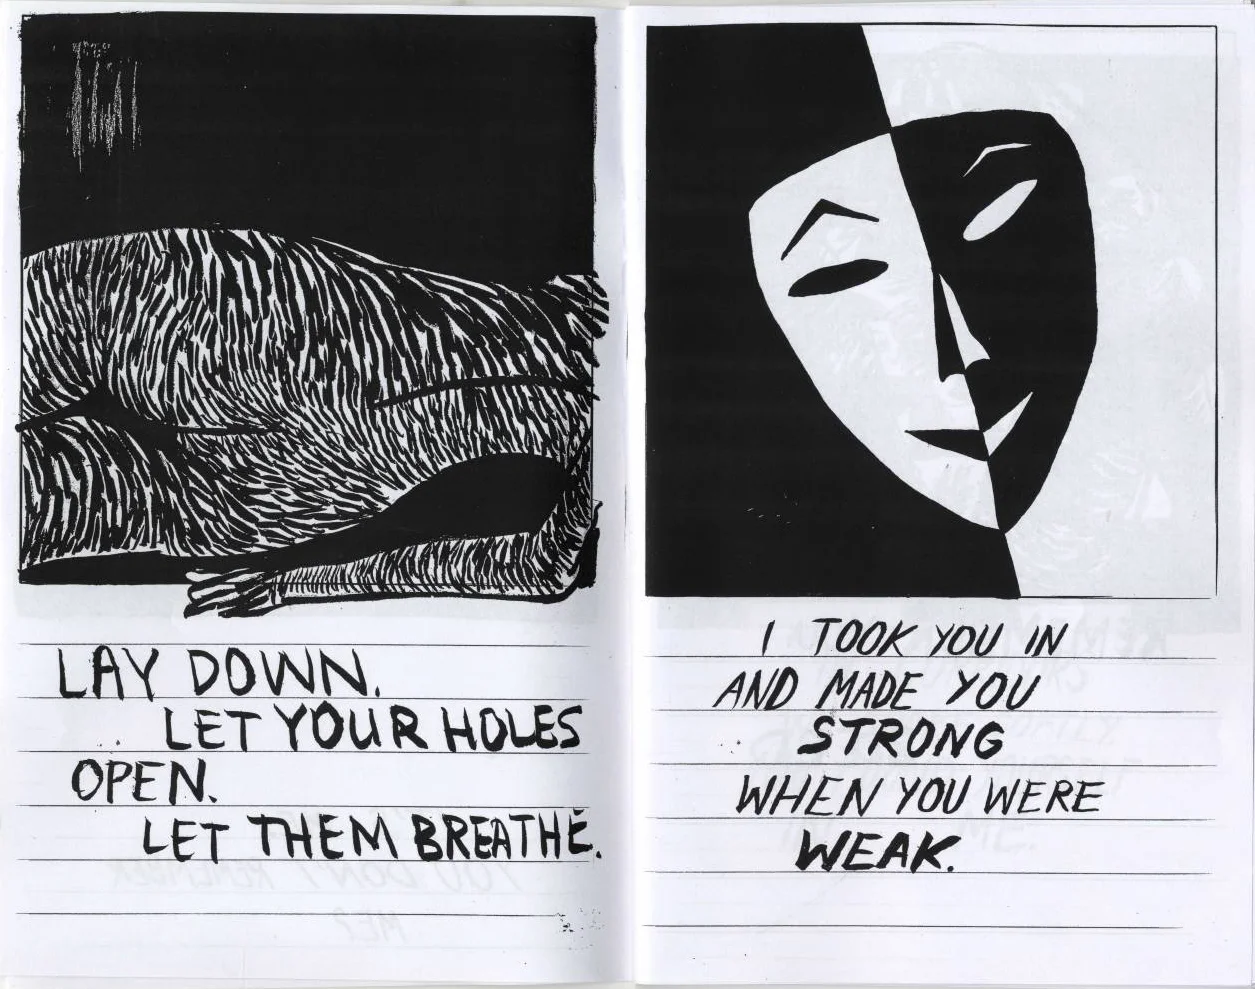 LAY DOWN.
LET YOUR HOLES
OPEN.
LET THEM BREATHE.
I TOOK YOU IN
AND MADE YOU
STRONG
WHEN YOU WERE
WEAK.
YOU DON'T REMEMBER
ME?